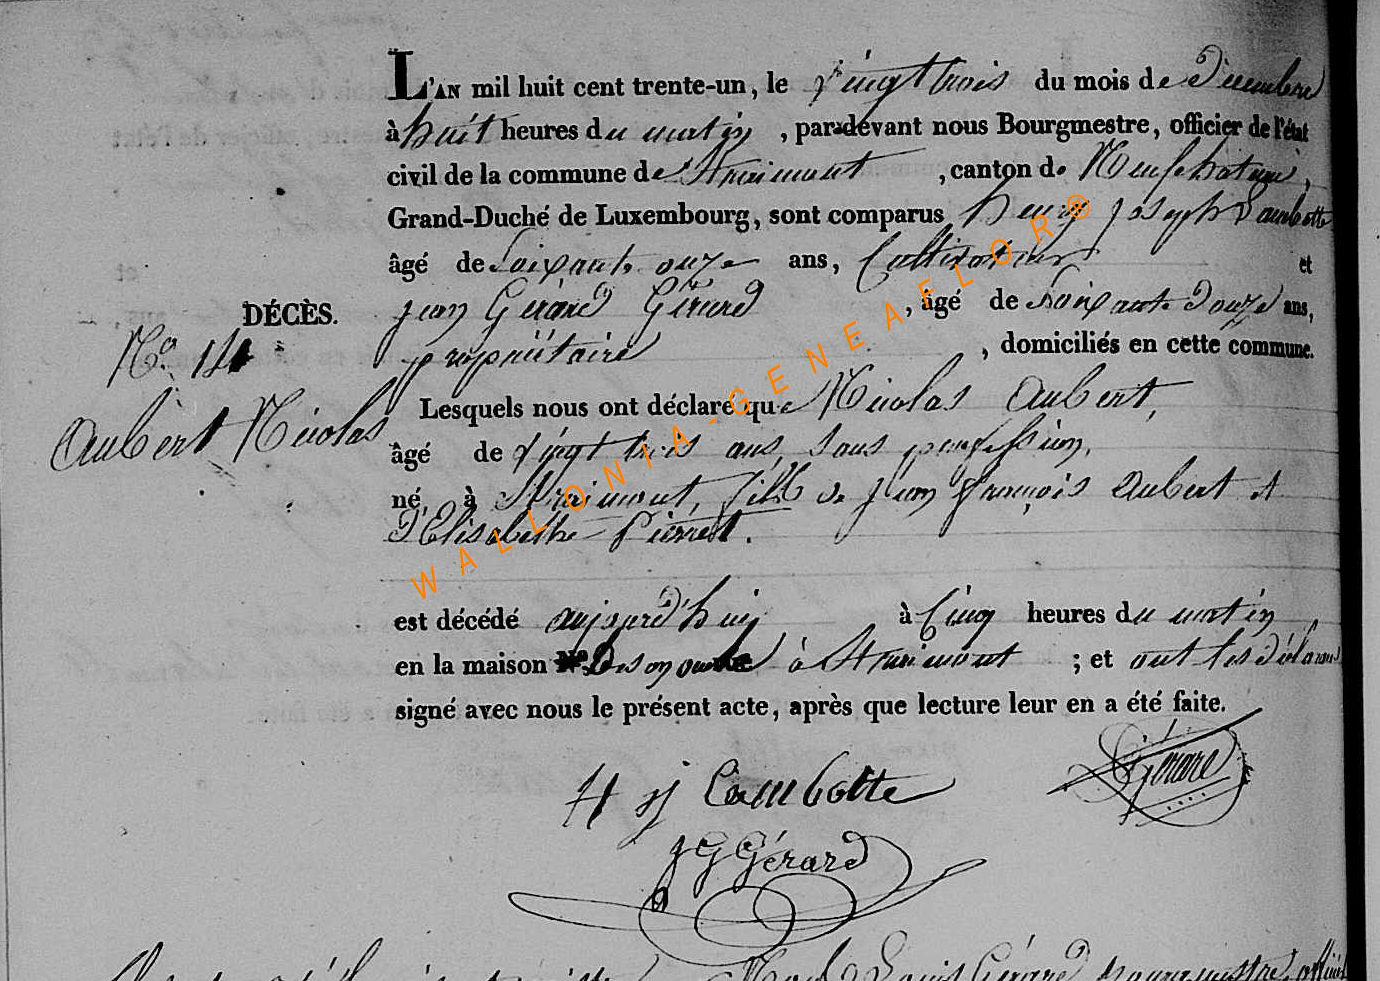 L'AN mil huit cent trente-un, le vingt trois du mois de Décembre
à huit heures du matin, par-devant nous Bourgmestre, officier de l'état
civil de la commune de Straimont, canton de Neufchateau,
Grand-Duché de Luxembourg, sont comparus henry joseph Lambotte
âgé de Soixante onze ans, Cultivateur et
DÉCÈS.
jean Gérard Gérard, âgé de Soixante Douze ans,
N.o 14
propriétaire, domiciliés en cette commune.
Aubert Nicolas
Lesquels nous ont déclaré que Nicolas Aubert,
âgé de vingt trois ans, sans profession,
né à Straimont, fils de jean françois Aubert et
D'Elisabethe Pierret.
est décédé aujourd'hui à Cinq heures du matin
en la maison N.o à Straimont ; et ont les déclarans
signé avec nous le présent acte, après que lecture leur en a été faite.
Gérard
H j Lambotte
J G Gérard
Louis Gérard bourgmestre, officier
WALLONIA-GENEAFLOR®